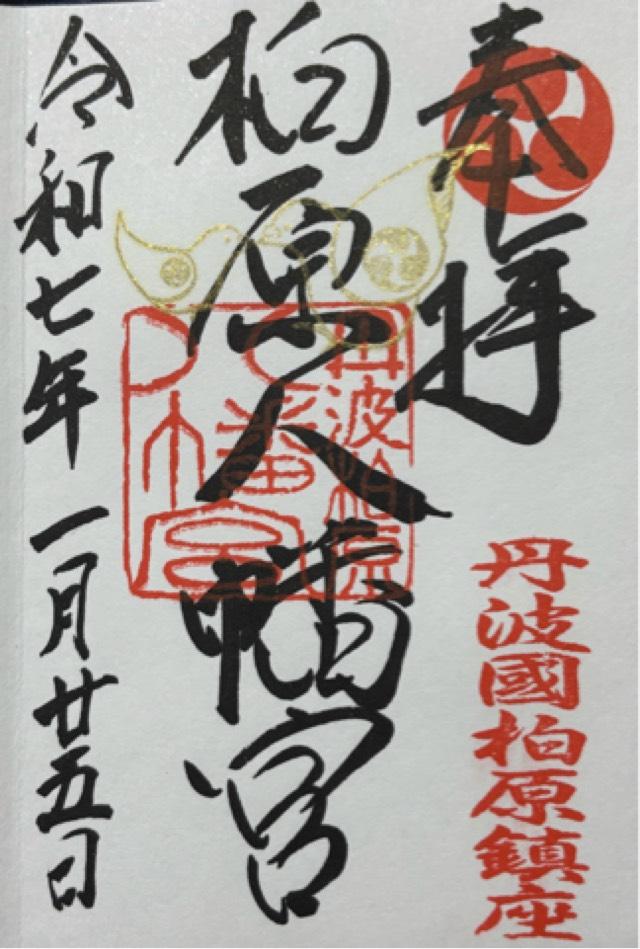 奉拝
丹波國柏原鎮座
柏原八幡宮
丹波柏原
八幡宮
令和七年 一月廿五日